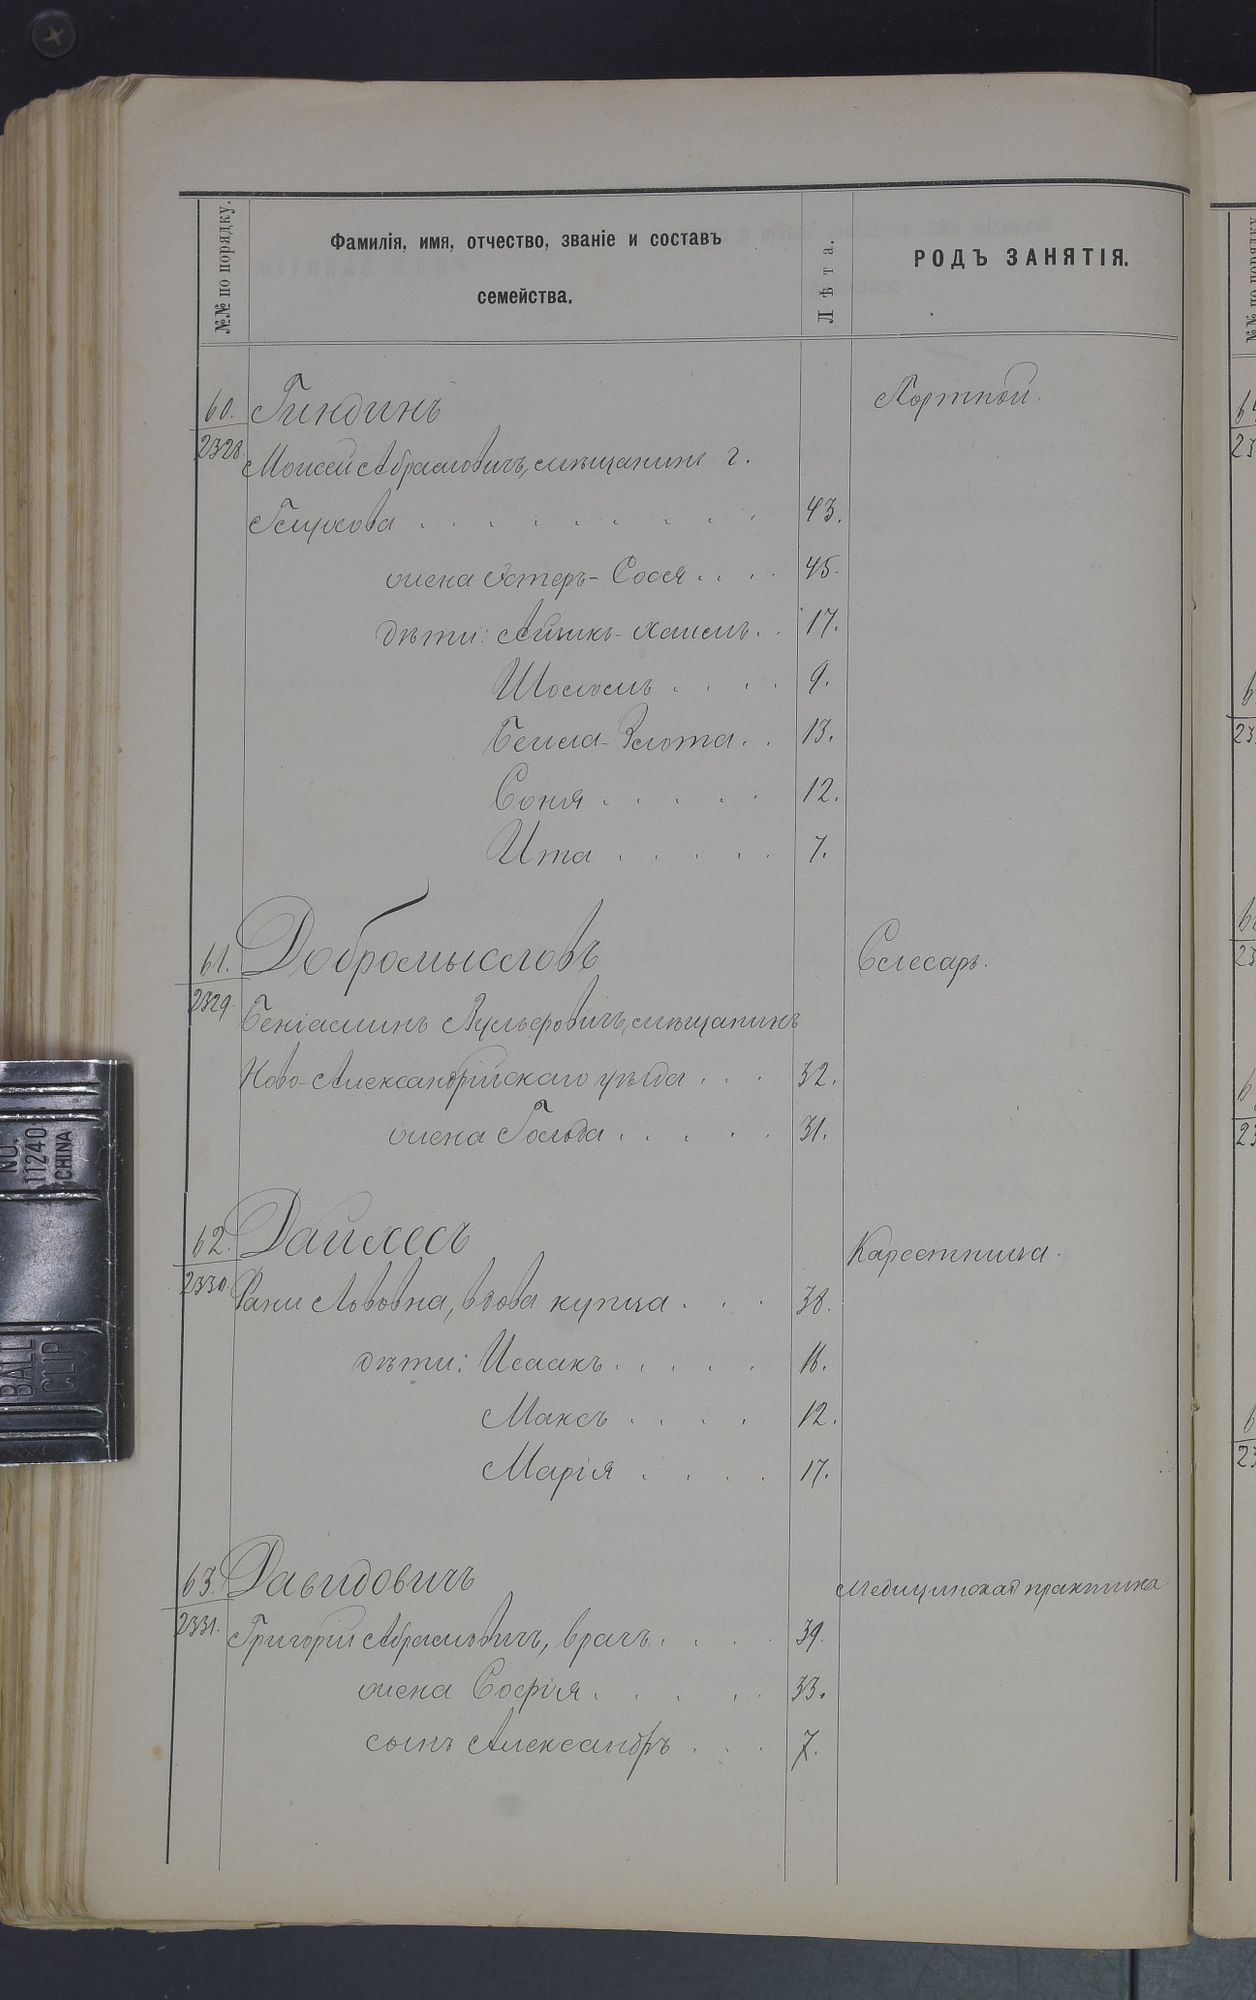 №№ по порядку.
Фамилія, имя, отчество, званіе и составъ
семейства.
Лѣта.
РОДЪ ЗАНЯТІЯ.
60. Гиндинъ Портной.
2328 Моисей Абрамовичъ, мѣщанинъ г.
Глухова . . . . . . . . . 43.
жена Эстеръ-Сося . . . . 45.
дѣти: Айзикъ-Хаимъ . . 17.
Шоломъ . . . . 9.
Бейла-Злота . . 13.
Соня . . . . . 12.
Ита . . . . . 7.
61. Добромысловъ Слесарь.
2329. Беніаминъ Вульфовичъ, мѣщанинъ
Ново-Александрійскаго уѣзда . . . 32.
жена Гольда . . . . . 31.
62. Дайхесъ
2330. Львовна, вдова купца . . . 38.
дѣти: Исаакъ . . . . . 16.
Максъ . . . . 12.
Марія . . . . 17.
63. Давидовичъ Медицинская практика.
2331. Григорій Абрамовичъ, врачъ . . . . 39.
жена Софія . . . . . 33.
сынъ Александръ . . . 7.
NO.
11240
CHINA
BALL
CLIP